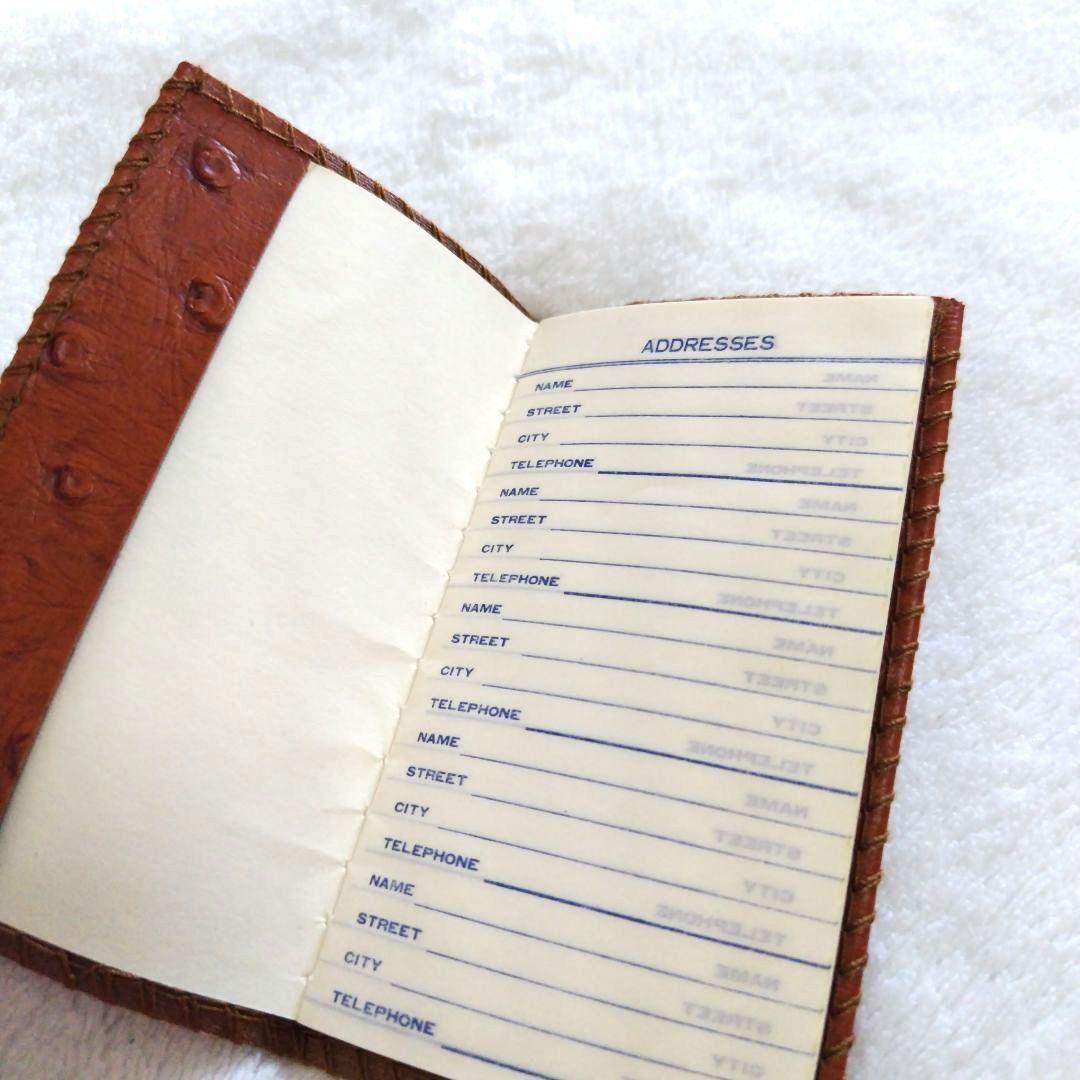 ADDRESSES
NAME
STREET
CITY
TELEPHONE
NAME
STREET
CITY
TELEPHONE
NAME
STREET
CITY
TELEPHONE
NAME
STREET
CITY
TELEPHONE
NAME
STREET
CITY
TELEPHONE